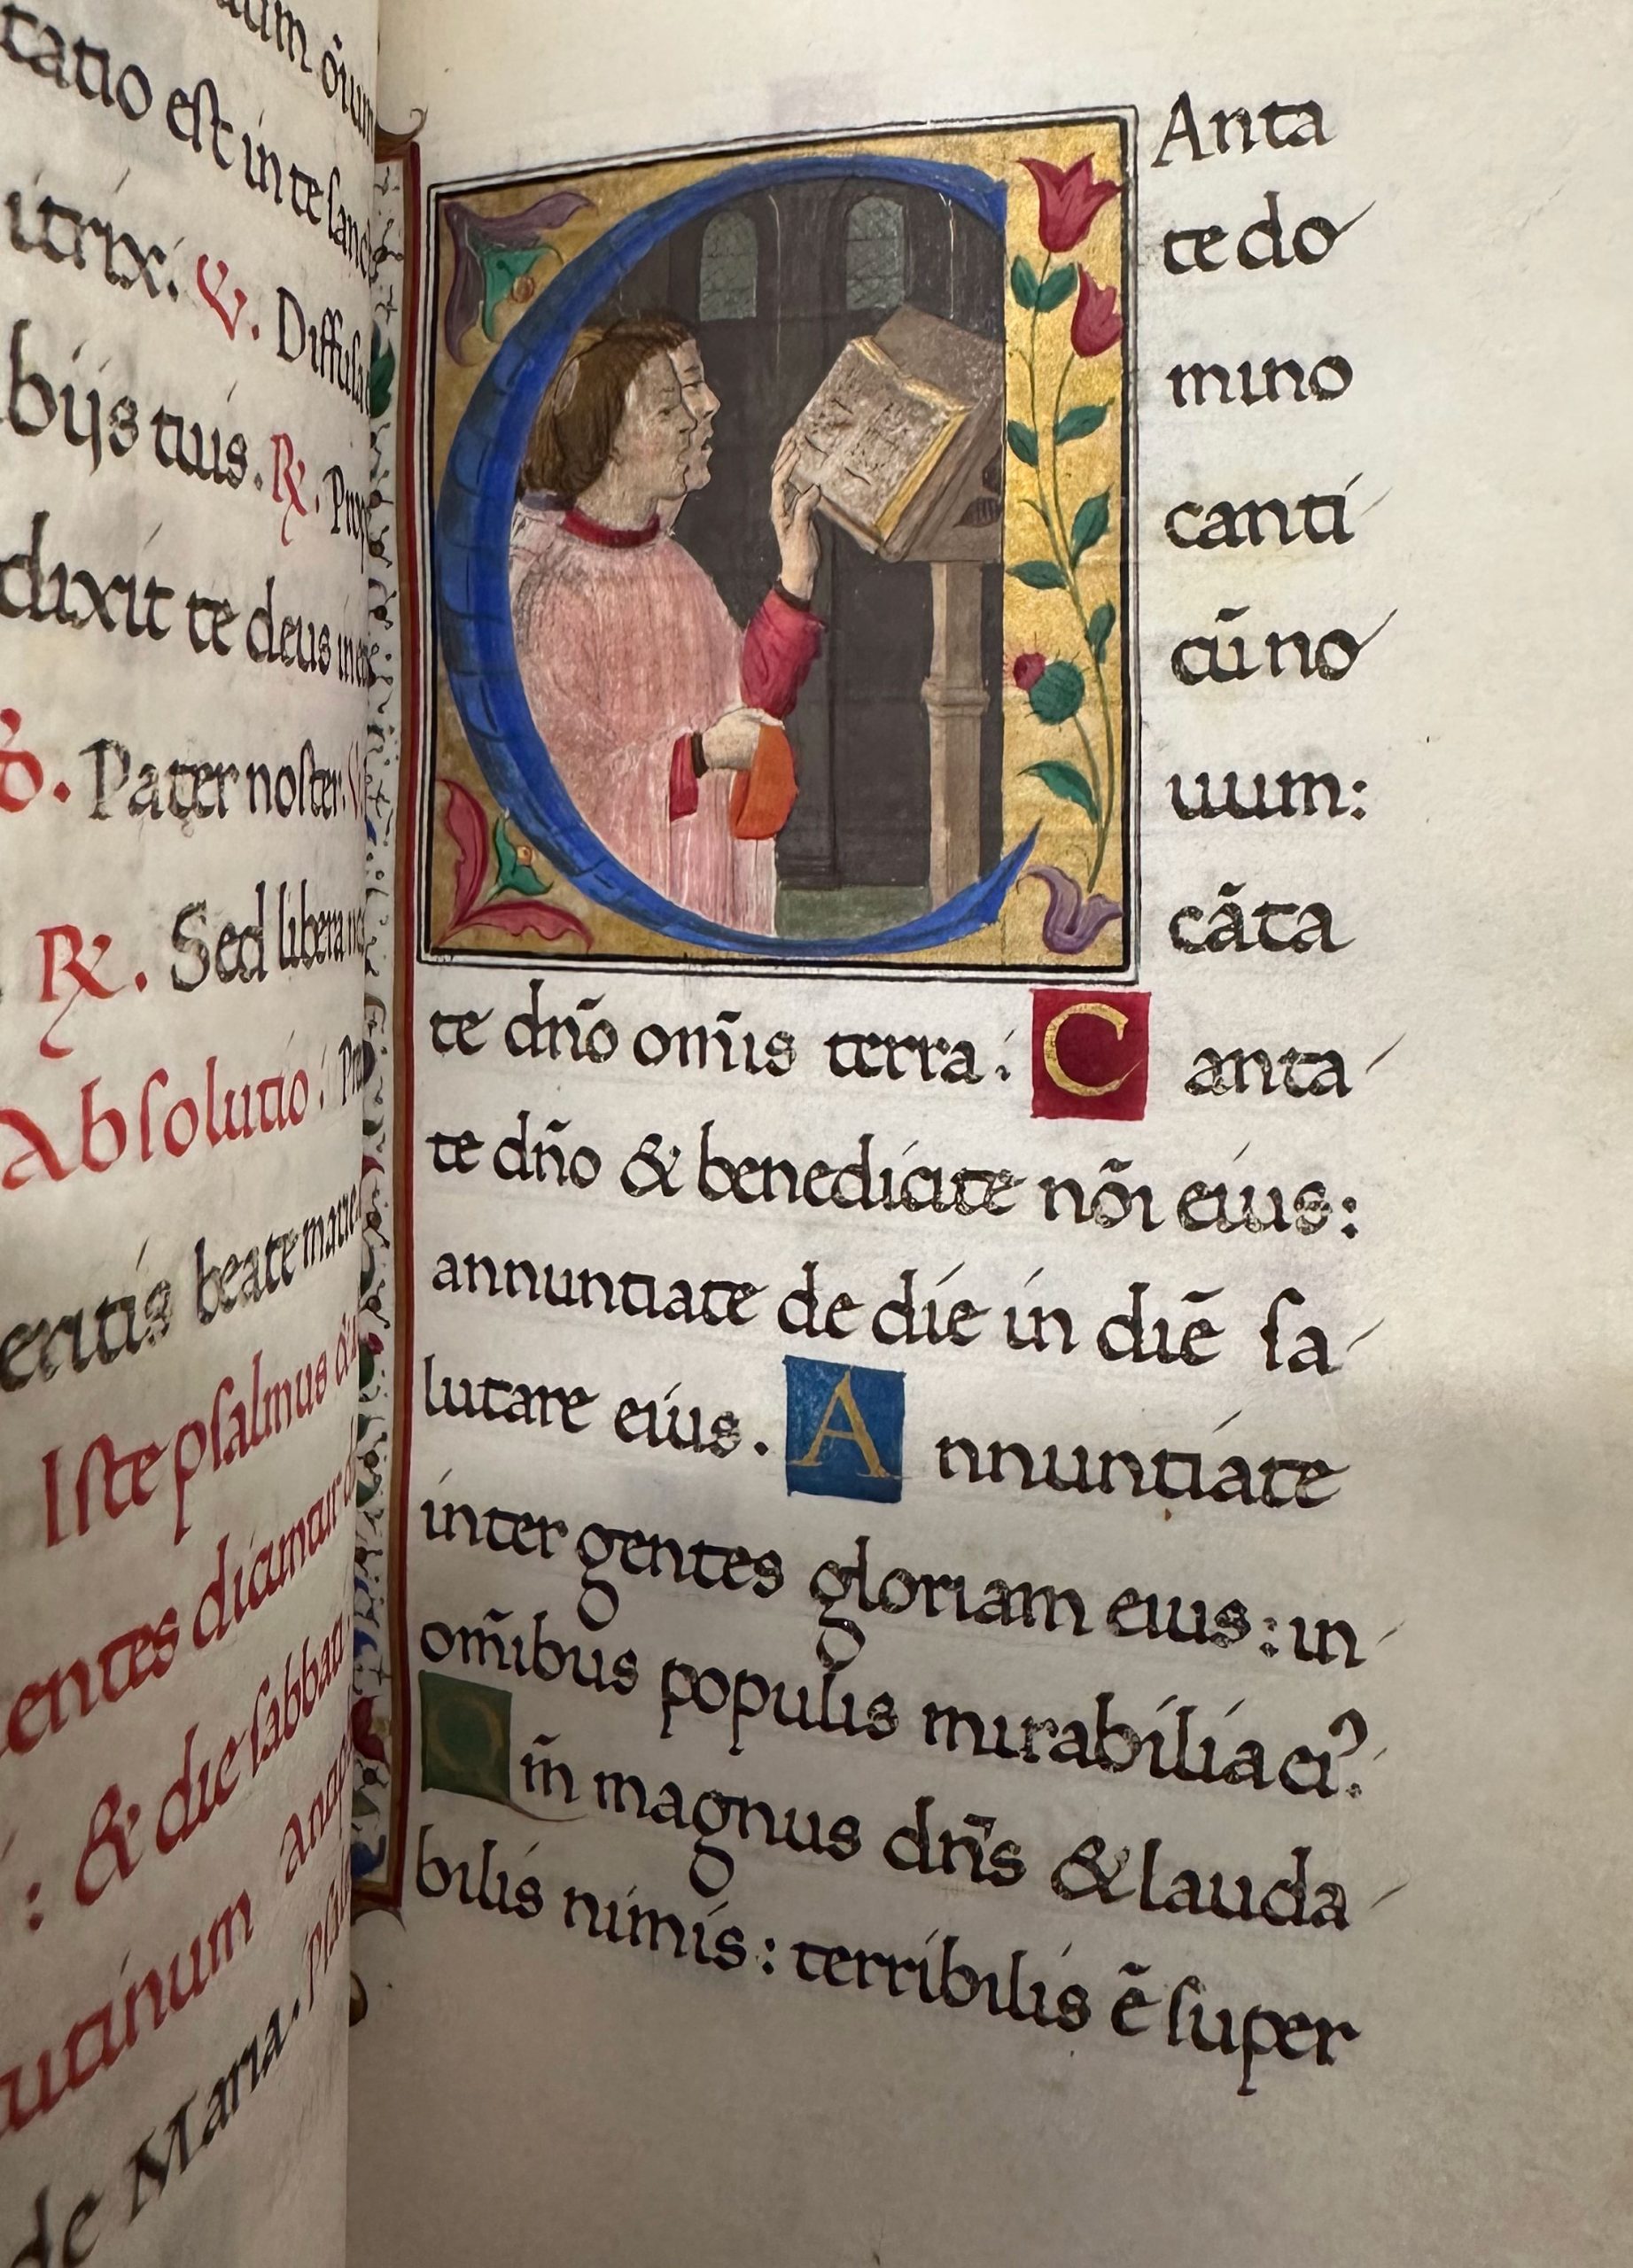 tatio est in te
itrix. V. Diffusa
bijs tuis. R.
dixit te deus
Pater noster.
R. Sed libera
Absolutio.
beate marie
Iste psalmus
entes dicuntur
: & die sabbati
de Maria.
CAnta
te do
mino
canti
cū no
uum:
cāta
te dn̄o om̄is terra. Canta
te dn̄o & benedicite nōi eius:
annuntiate de die in diē sa
lutare eius. Annuntiate
inter gentes gloriam eius: in
om̄ibus populis mirabilia ei?
Qm̄ magnus dn̄s & lauda
bilis nimis: terribilis ē super